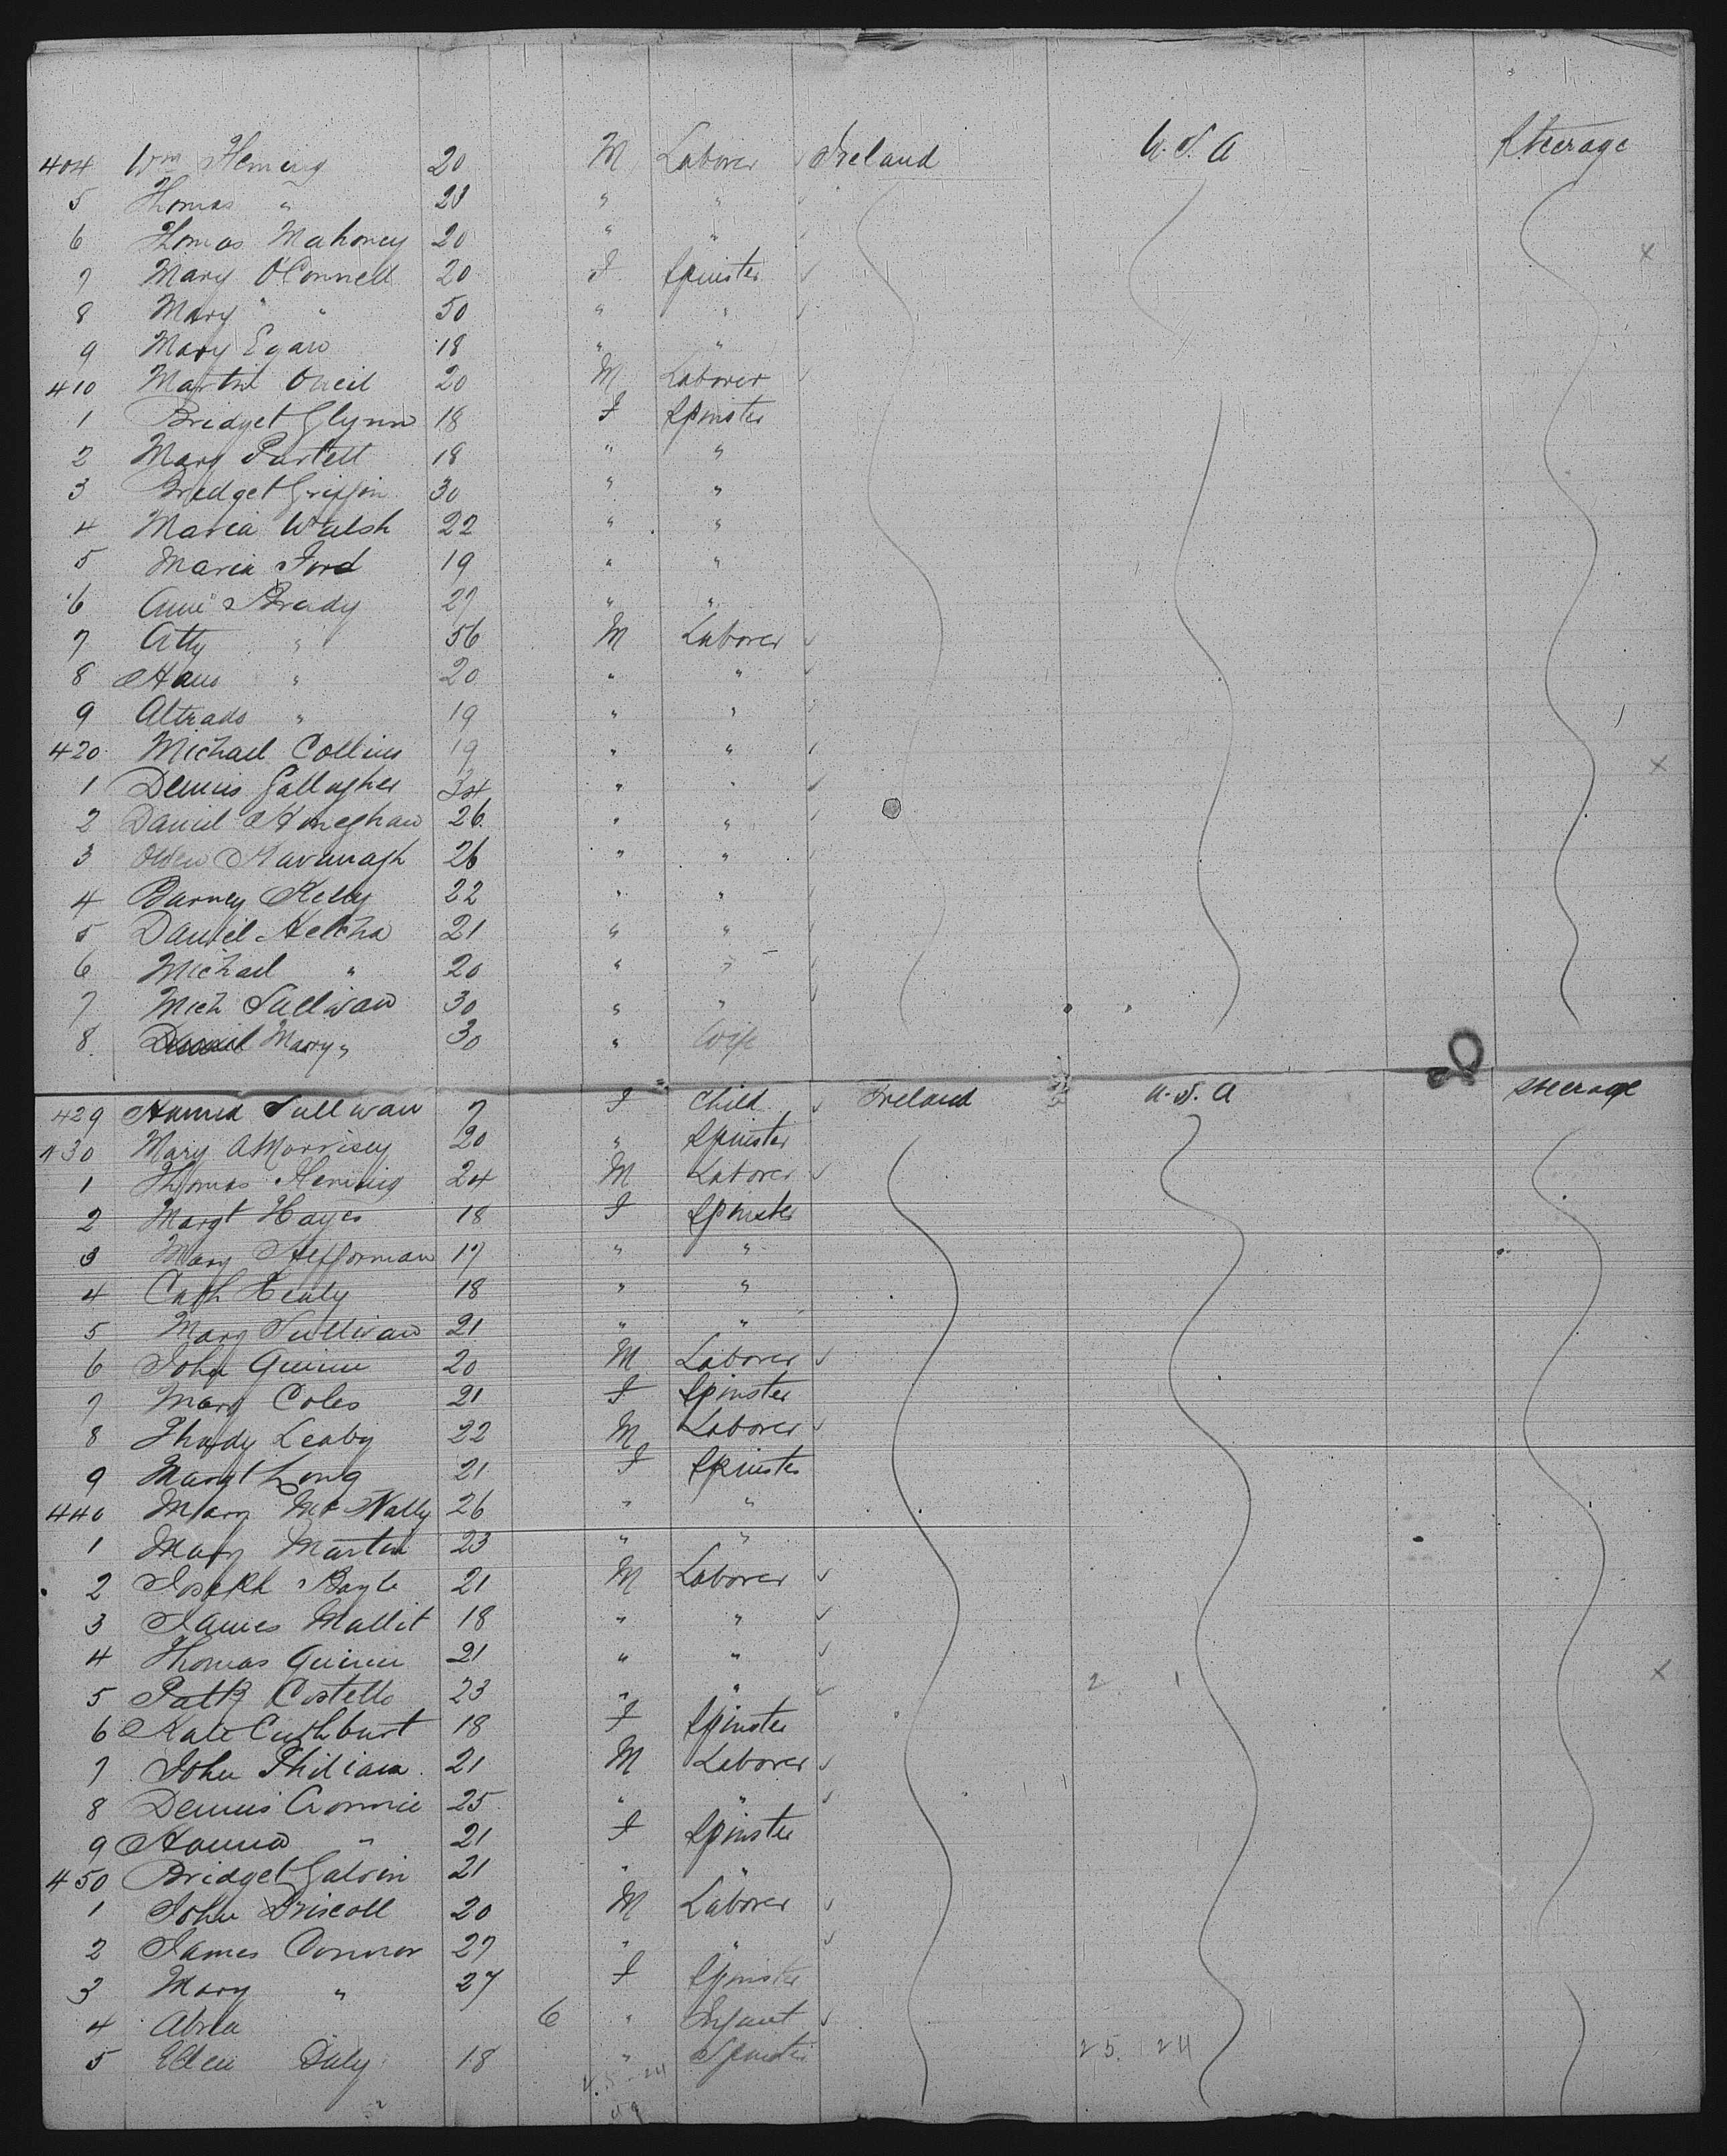 404 Wm Fleming 20 M Laborer Ireland U.S.A Steerage
5 Thomas " 23 " "
6 Thomas Mahoney 20 " "
7 Mary O'Connell 20 F Spinster
8 Mary " 50 " "
9 Mary Egan 18 " "
410 Martin Oneil 20 M Laborer
1 Bridget Glynn 18 F Spinster
2 Mary Purtell 18 " "
3 Bridget Griffin 30 " "
4 Maria Walsh 22 " "
5 Maria Ford 19 " "
6 Brady 27 " "
7 Atty " 56 M Laborer
8 Hans " 20 " "
9 " 19 " "
420 Michael Collins 19 " "
1 Dennis Gallagher 34 " "
2 Daniel 26 " "
3 Owen Kavanagh 26 " "
4 Barney Kelly 22 " "
5 Daniel 21 " "
6 Michael " 20 " "
7 Mich Sullivan 30 " "
8 Daniel Mary " 30 " Wife
429 Hanna Sullivan 7 F Child Ireland U.S.A Steerage
430 Mary A Morrisey 20 " Spinster
1 Thomas Fleming 24 M Laborer
2 Margt Hayes 18 F Spinster
3 Mary Hefforman 17 " "
4 Cath Healy 18 " "
5 Mary Sullivan 21 " "
6 John Quinn 20 M Laborer
7 Mary Coles 21 F Spinster
8 Thady Leahy 22 M Laborer
9 Margt Long 21 F Spinster
440 Mary McNally 26 " "
1 Mary Martin 23 " "
2 Joseph Boyle 21 M Laborer
3 James Mallit 18 " "
4 Thomas Quinn 21 " "
5 Patk Costello 23 " " 2 1
6 Kate Cuthburt 18 F Spinster
7 John 21 M Laborer
8 Dennis Cronnie 25 " "
9 Hanna " 21 F Spinster
450 Bridget Galvin 21 " "
1 John Driscoll 20 M Laborer
2 James Connor 27 " "
3 Mary " 27 F Spinster
4 6 " Infant
5 Ellen Daly 18 " Spinster 25. 24
25-24